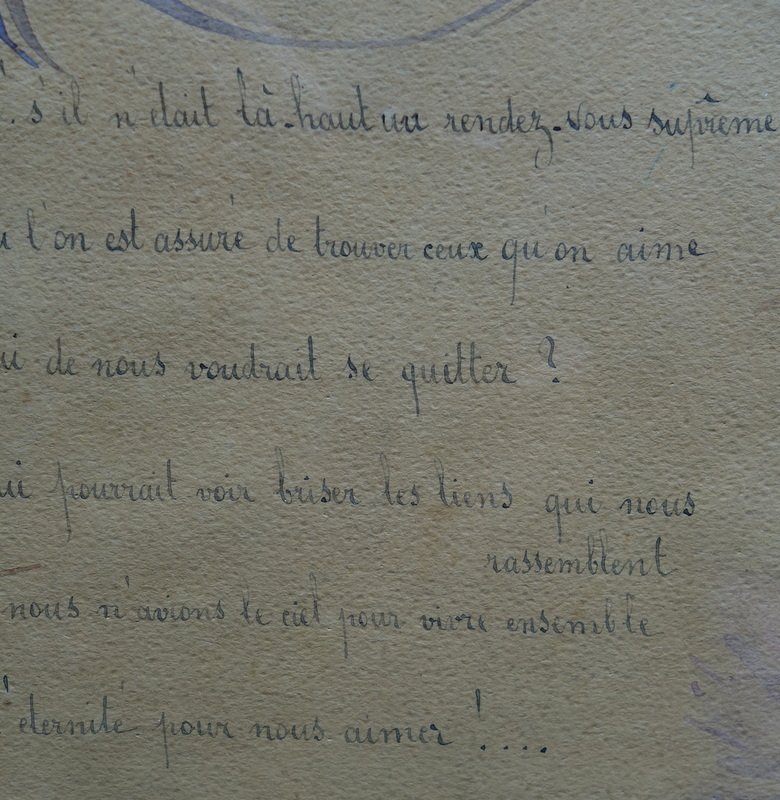 s'il n'était là-haut un rendez-vous suprême
l'on est assuré de trouver ceux qu'on aime
de nous voudrait se quitter ?
pourrait voir briser les liens qui nous
rassemblent
nous n'avions le ciel pour vivre ensemble
l'éternité pour nous aimer !....